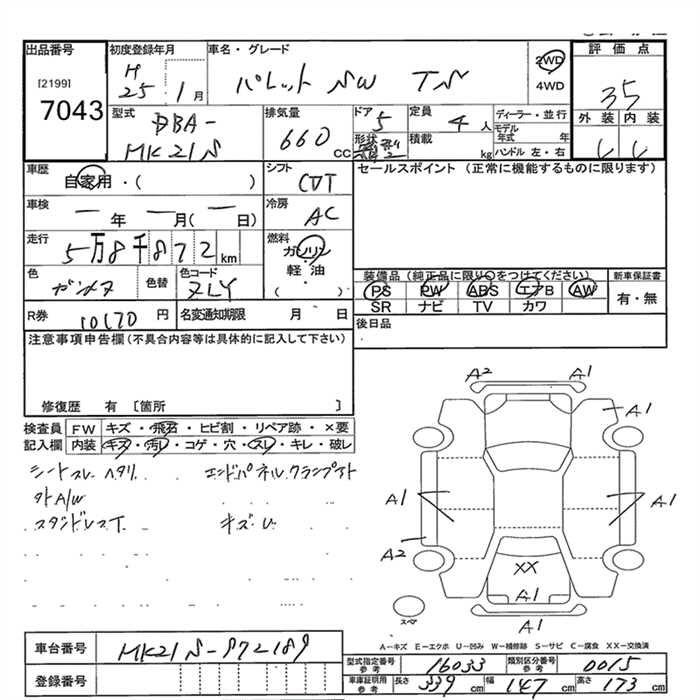 出品番号
[2199]
7043
初度登録年月
H
25 1月
車名・グレード
パレット SW TS
2WD
4WD
評価点
3.5
外装 内装
型式
DBA-
MK21S
排気量
660 CC
ドア 5
形状
定員 4人
積載 kg
ディーラー・並行
モデル年式 年
ハンドル 左・右
車歴
自家用・( )
シフト
CVT
セールスポイント (正常に機能するものに限ります)
車検
年 月( 日)
冷房
AC
走行
5万8千872km
燃料
ガソリン
軽油
( )
色
ガンメタ
色替
色コード
ZLY
装備品 (純正品に限り○をつけてください)
PS PW ABS エアB AW
SR ナビ TV カワ
新車保証書
有・無
R券 10170円
名変通知期限 月 日
後日品
注意事項申告欄 (不具合内容等は具体的に記入して下さい)
修復歴 有 〔箇所 〕
検査員記入欄
FW キズ・飛石・ヒビ割・リペア跡・×要
内装 キズ・汚レ・コゲ・穴・スレ・キレ・破レ
シートスレ ヘタリ エンドパネルクランプ
外A/W
スタッドレスT キズU
A2 A1
A1
A1 A1
A2
XX
A1
A1
スペア
A-キズ E-エクボ U-凹み W-補修跡 S-サビ C-腐食 XX-交換済
車台番号 MK21S-972189
登録番号
型式指定番号 参考 16033 類別区分番号 参考 0015
車庫証明用 参考 長さ 339cm 幅 147cm 高さ 173cm